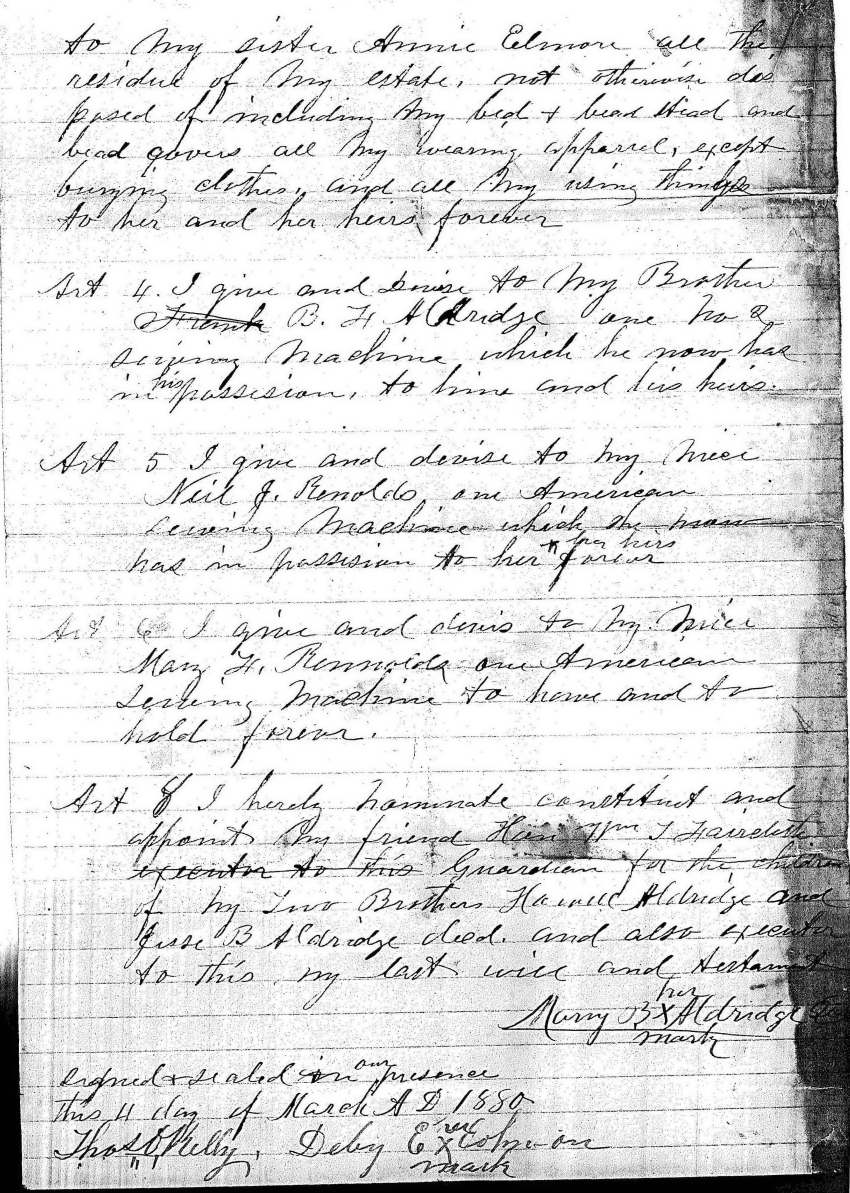 to my sister Annie Elmore all the
residue of my estate, not otherwise dis
posed of including my bed & bead stead and
bead covers all my wearing apparrel, except
burying clothes, and all my using things
to her and her heirs forever
Art 4. I give and devise to my Brother
Frank B. F Aldridge one No 2
sewing machine which he now has
in his possesion, to hime and his heirs.
Art 5 I give and devise to my niece
J. Renolds, one American
sewing machine which she now
has in possesion to her & her hirs forever
Art 6 I give and devis to my niece
Mary F. Rennolds one American
sewing machine to have and to
hold forever.
Art I herely nominate constitut and
appoint my friend Wm T Faircloth
executor to this Guardian for the children
of my Two Brothers Howell Aldridge and
Jesse B Aldridge decd. and also executor
to this my last will and testament
her
Mary B X Aldridge
mark
signed & sealed in our presence
this 4 day of March A D 1880
Thos Kelly, Deby E X
mark